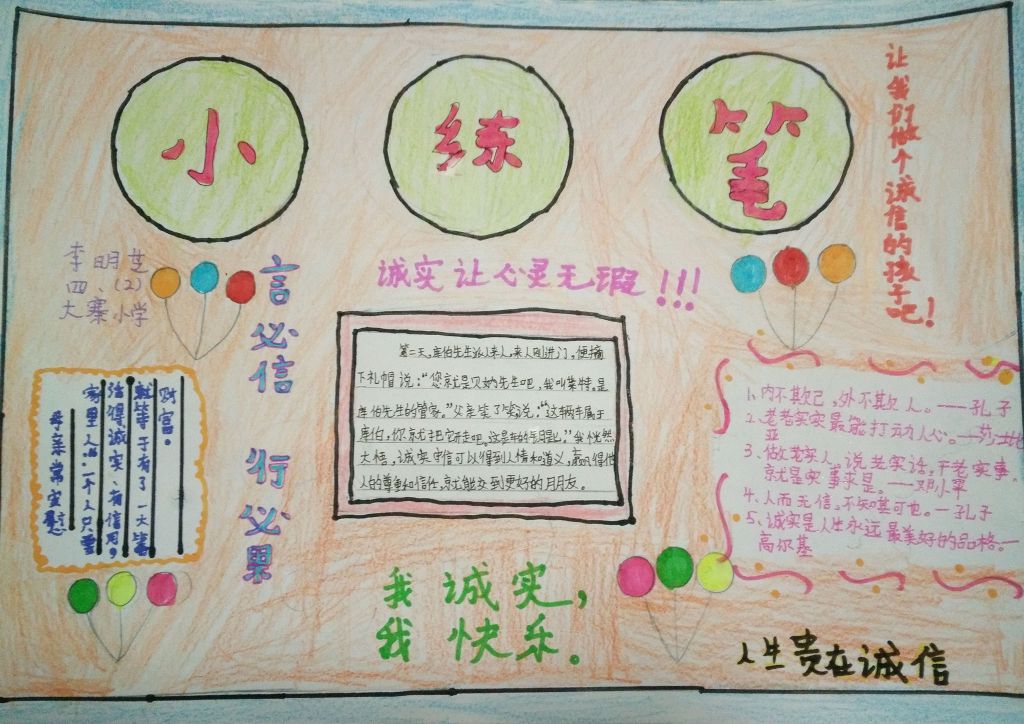 小 练 笔
让我们做个诚信的孩子吧!
李明芝
四、(2)
大寨小学
言必信 行必果
诚实让心灵无瑕!!!
第二天,库伯先生派人来人,来人刚进门,便摘
下礼帽说:“您就是贝奶先生吧,我叫莱特。是
库伯先生的管家。”父亲笑了笑说:“这辆车属于
库伯,你就把它开走吧。这是车的月匙。”我恍然
大悟,诚实守信可以得到人情和道义,赢得他
人的尊重和信任,就能交到更好的月月友。
母亲常安慰
家里人些:一个人只要
活得诚实、有信用,
就等于有了一大笔
财富。
1、内不欺己,外不欺人。——孔子
2、老老实实最能打动人心。——莎士比
亚
3、做老实人,说老实话,干老实事。
就是实事求是。——邓小平
4、人而无信,不知其可也。—孔子
5、诚实是人生永远最美好的品格。—
高尔基
我诚实,
我快乐。
人生贵在诚信